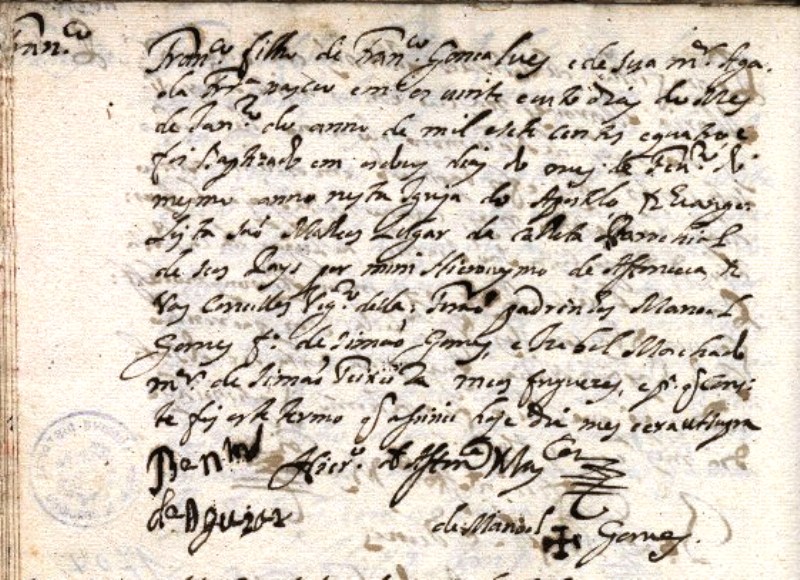 Fran.co
Fran.co filho de Fran.co Goncalves e de sua m.er Aga-
da Frr.a nasceo em os vinte e outo dias do Mes
de Jan.ro do anno de mil e sete centos e quatro, e
foi Baptizado em os dous dias do mes de Feu.ro do
mesmo anno nesta Igreja do Apostolo, & Evange-
lista São Matheus Lugar da Calheta Parrochial
de seus Pays por mim Hieronymo de Affonceca &
Vas Concellos Vig.ro della: Forão padrinhos Manoel
Gomes f.o de Simão Gomes, e Izabel Machado
m.er de Simão Teixeira meos freguezes, e p.a q cons-
te fiz este termo q asinei hoje dia mes e era ut supra
Hier.o de Affon.ca Vas Con.los
de Manoel Gomes.